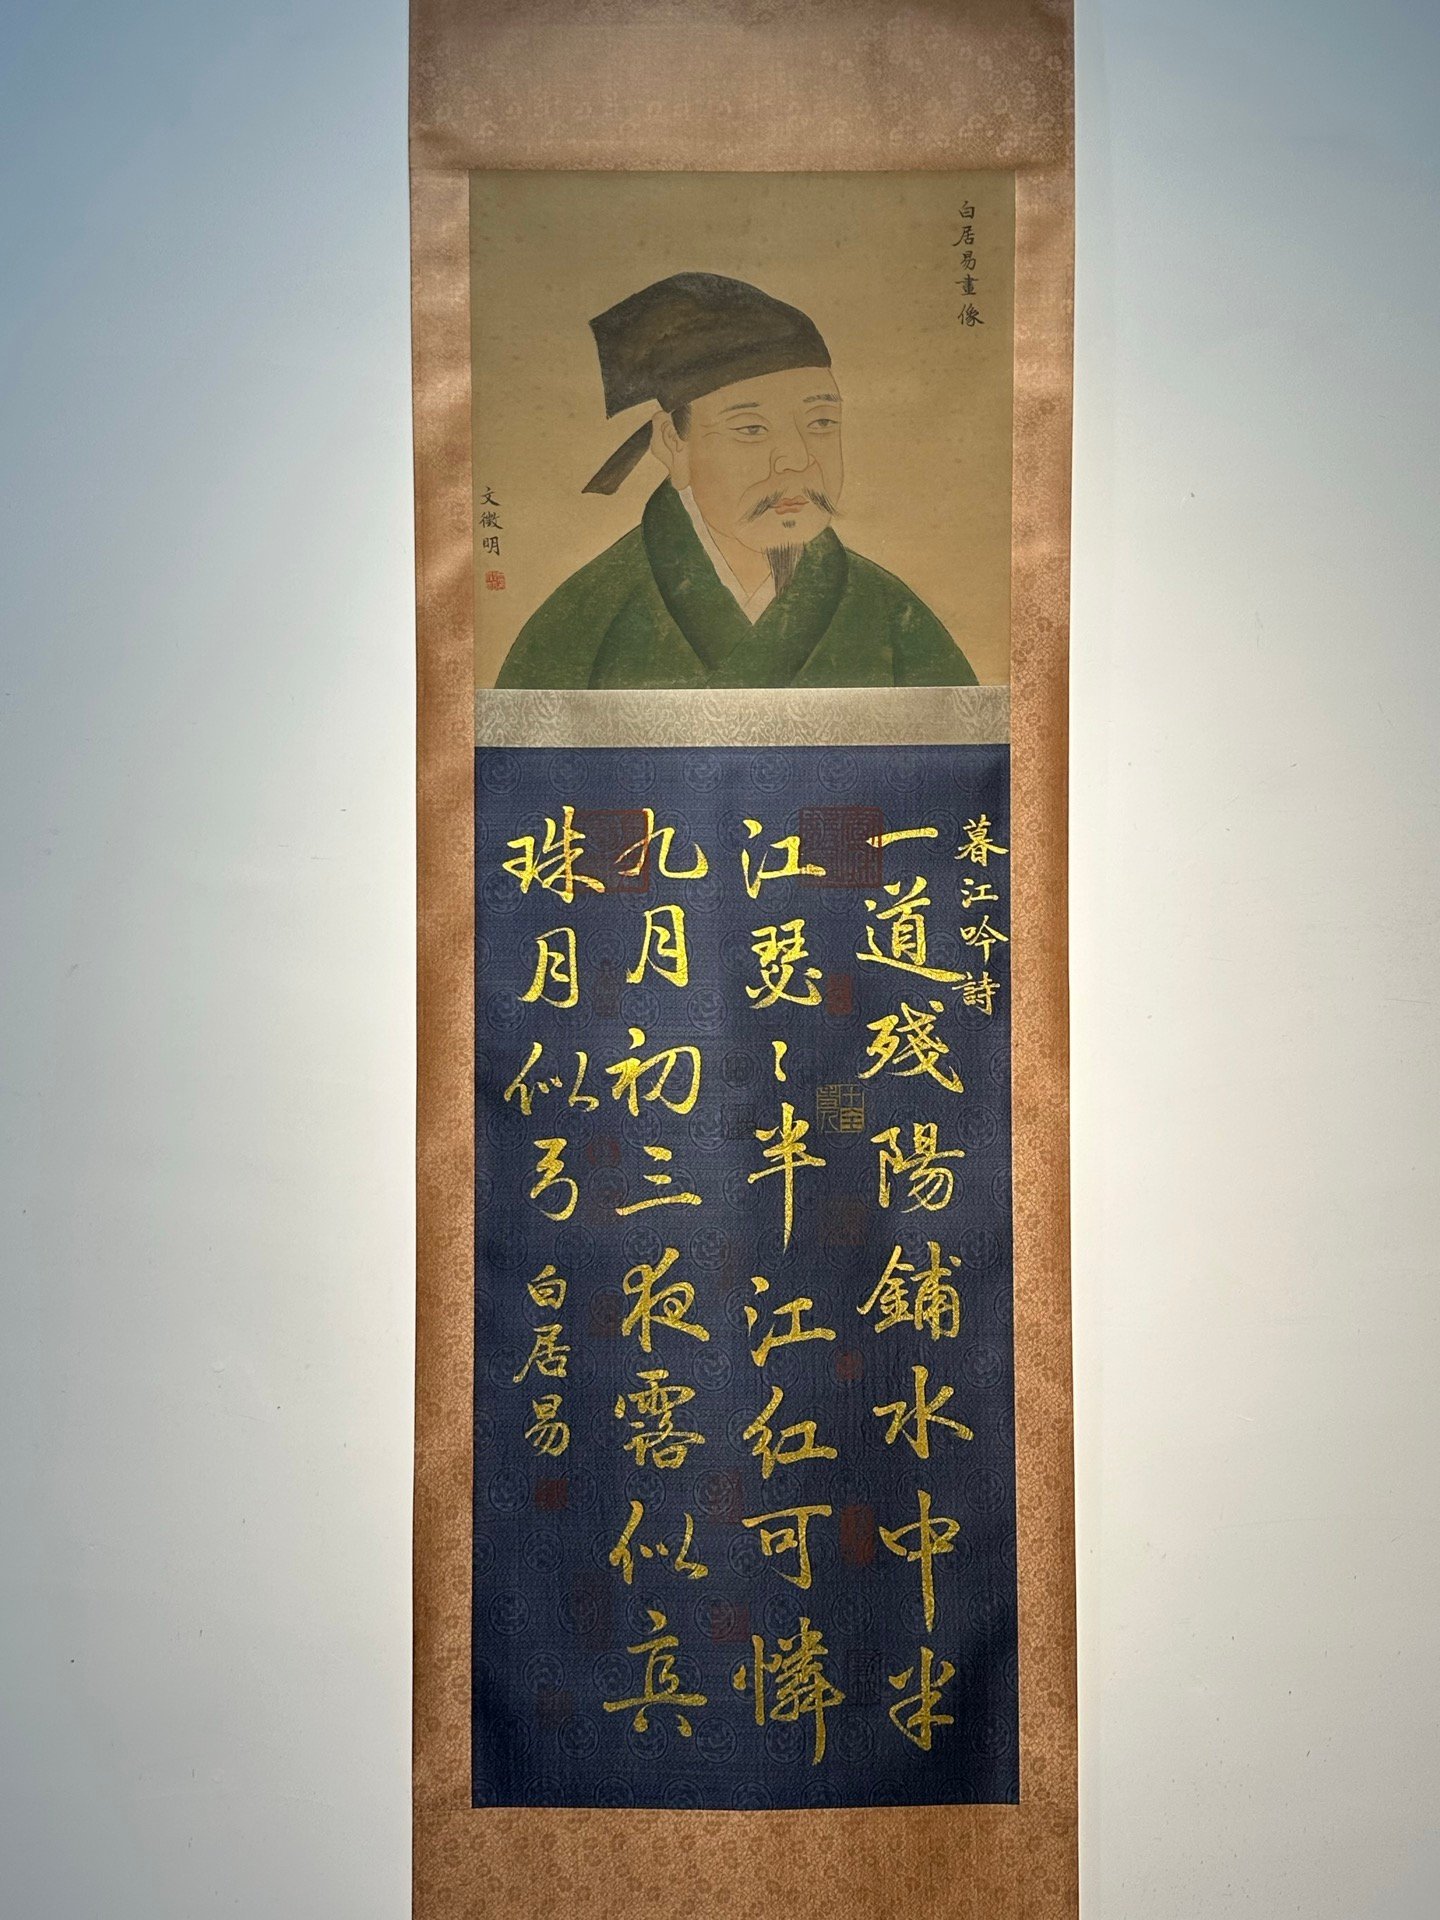 白居易畫像
文徵明
暮江吟詩
一道殘陽鋪水中半
江瑟〻半江红可憐
九月初三夜露似真
珠月似弓
白居易